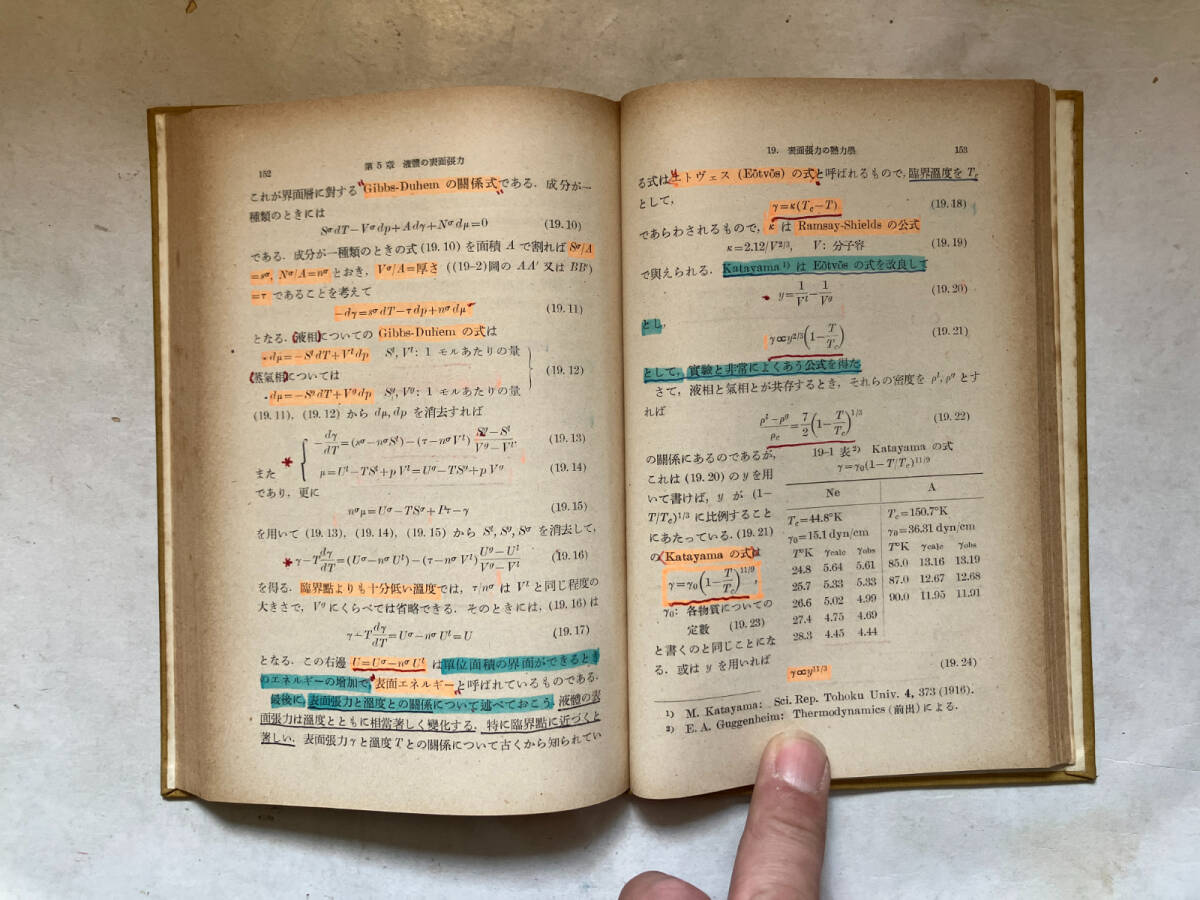 152
第5章 液體の表面張力
これが界面層に對する Gibbs-Duhem の關係式である．成分が一
種類のときには
SσdT−Vσdp+Adγ+Nσdμ=0 (19.10)
である．成分が一種類のときの式(19.10)を面積 A で割れば Sσ/A
=sσ, Nσ/A=nσ とおき，Vσ/A=厚さ ((19-2)圖の AA′ 又は BB′)
=τ であることを考えて
−dγ=sσdT−τdp+nσdμ (19.11)
となる．液相についての Gibbs-Duhem の式は
dμ=−SldT+Vldp Sl, Vl: 1 モルあたりの量
蒸氣相については
(19.12)
dμ=−SgdT+Vgdp Sg, Vg: 1 モルあたりの量
(19.11), (19.12) から dμ, dp を消去すれば
−dγ/dT=(sσ−nσSl)−(τ−nσVl) (Sg−Sl)/(Vg−Vl), (19.13)
また μ=Ul−TSl+pVl=Ug−TSg+pVg (19.14)
であり，更に
nσμ=Uσ−TSσ+Pτ−γ (19.15)
を用いて (19.13), (19.14), (19.15) から Sl, Sg, Sσ を消去して，
γ−T dγ/dT=(Uσ−nσUl)−(τ−nσVl) (Ug−Ul)/(Vg−Vl) (19.16)
を得る．臨界點よりも十分低い溫度では，τ/nσ は Vl と同じ程度の
大きさで，Vg にくらべては省略できる．そのときには，(19.16)は
γ−T dγ/dT=Uσ−nσUl=U (19.17)
となる．この右邊 U=Uσ−nσUl は單位面積の界面ができるとき
のエネルギーの增加で，表面エネルギーと呼ばれているものである．
最後に，表面張力と溫度との關係について述べておこう．液體の表
面張力は溫度とともに相當著しく變化する．特に臨界點に近づくと
著しい．表面張力 γ と溫度 T との關係について古くから知られてい
19. 表面張力の熱力學
153
る式はエトヴェス (Eötvös) の式と呼ばれるもので，臨界溫度を Tc
として，
γ=κ(Tc−T) (19.18)
であらわされるもので，κ は Ramsay-Shields の公式
κ=2.12/V2/3, V: 分子容 (19.19)
で與えられる．Katayama1) は Eötvös の式を改良して
y=1/Vl−1/Vg (19.20)
とし，
γ∝y2/3(1−T/Tc) (19.21)
として，實驗と非常によくあう公式を得た
さて，液相と氣相とが共存するとき，それらの密度を ρl, ρg とす
れば
(ρl−ρg)/ρc=7/2(1−T/Tc)1/3 (19.22)
の關係にあるのであるが，
これは (19.20) の y を用
いて書けば，y が (1−
T/Tc)1/3 に比例すること
にあたっている．(19.21)
の Katayama の式は
γ=γ0(1−T/Tc)11/9,
γ0: 各物質についての
定數 (19.23)
と書くのと同じことにな
る．或は y を用いれば
19-1 表2) Katayama の式
γ=γ0(1−T/Tc)11/9
Ne A
Tc=44.8°K Tc=150.7°K
γ0=15.1 dyn/cm γ0=36.31 dyn/cm
T°K γcalc γobs T°K γcalc γobs
24.8 5.64 5.61 85.0 13.16 13.19
25.7 5.33 5.33 87.0 12.67 12.68
26.6 5.02 4.99 90.0 11.95 11.91
27.4 4.75 4.69
28.3 4.45 4.44
γ∝y11/3 (19.24)
1) M. Katayama: Sci. Rep. Tohoku Univ. 4, 373 (1916).
2) E. A. Guggenheim: Thermodynamics (前出) による．